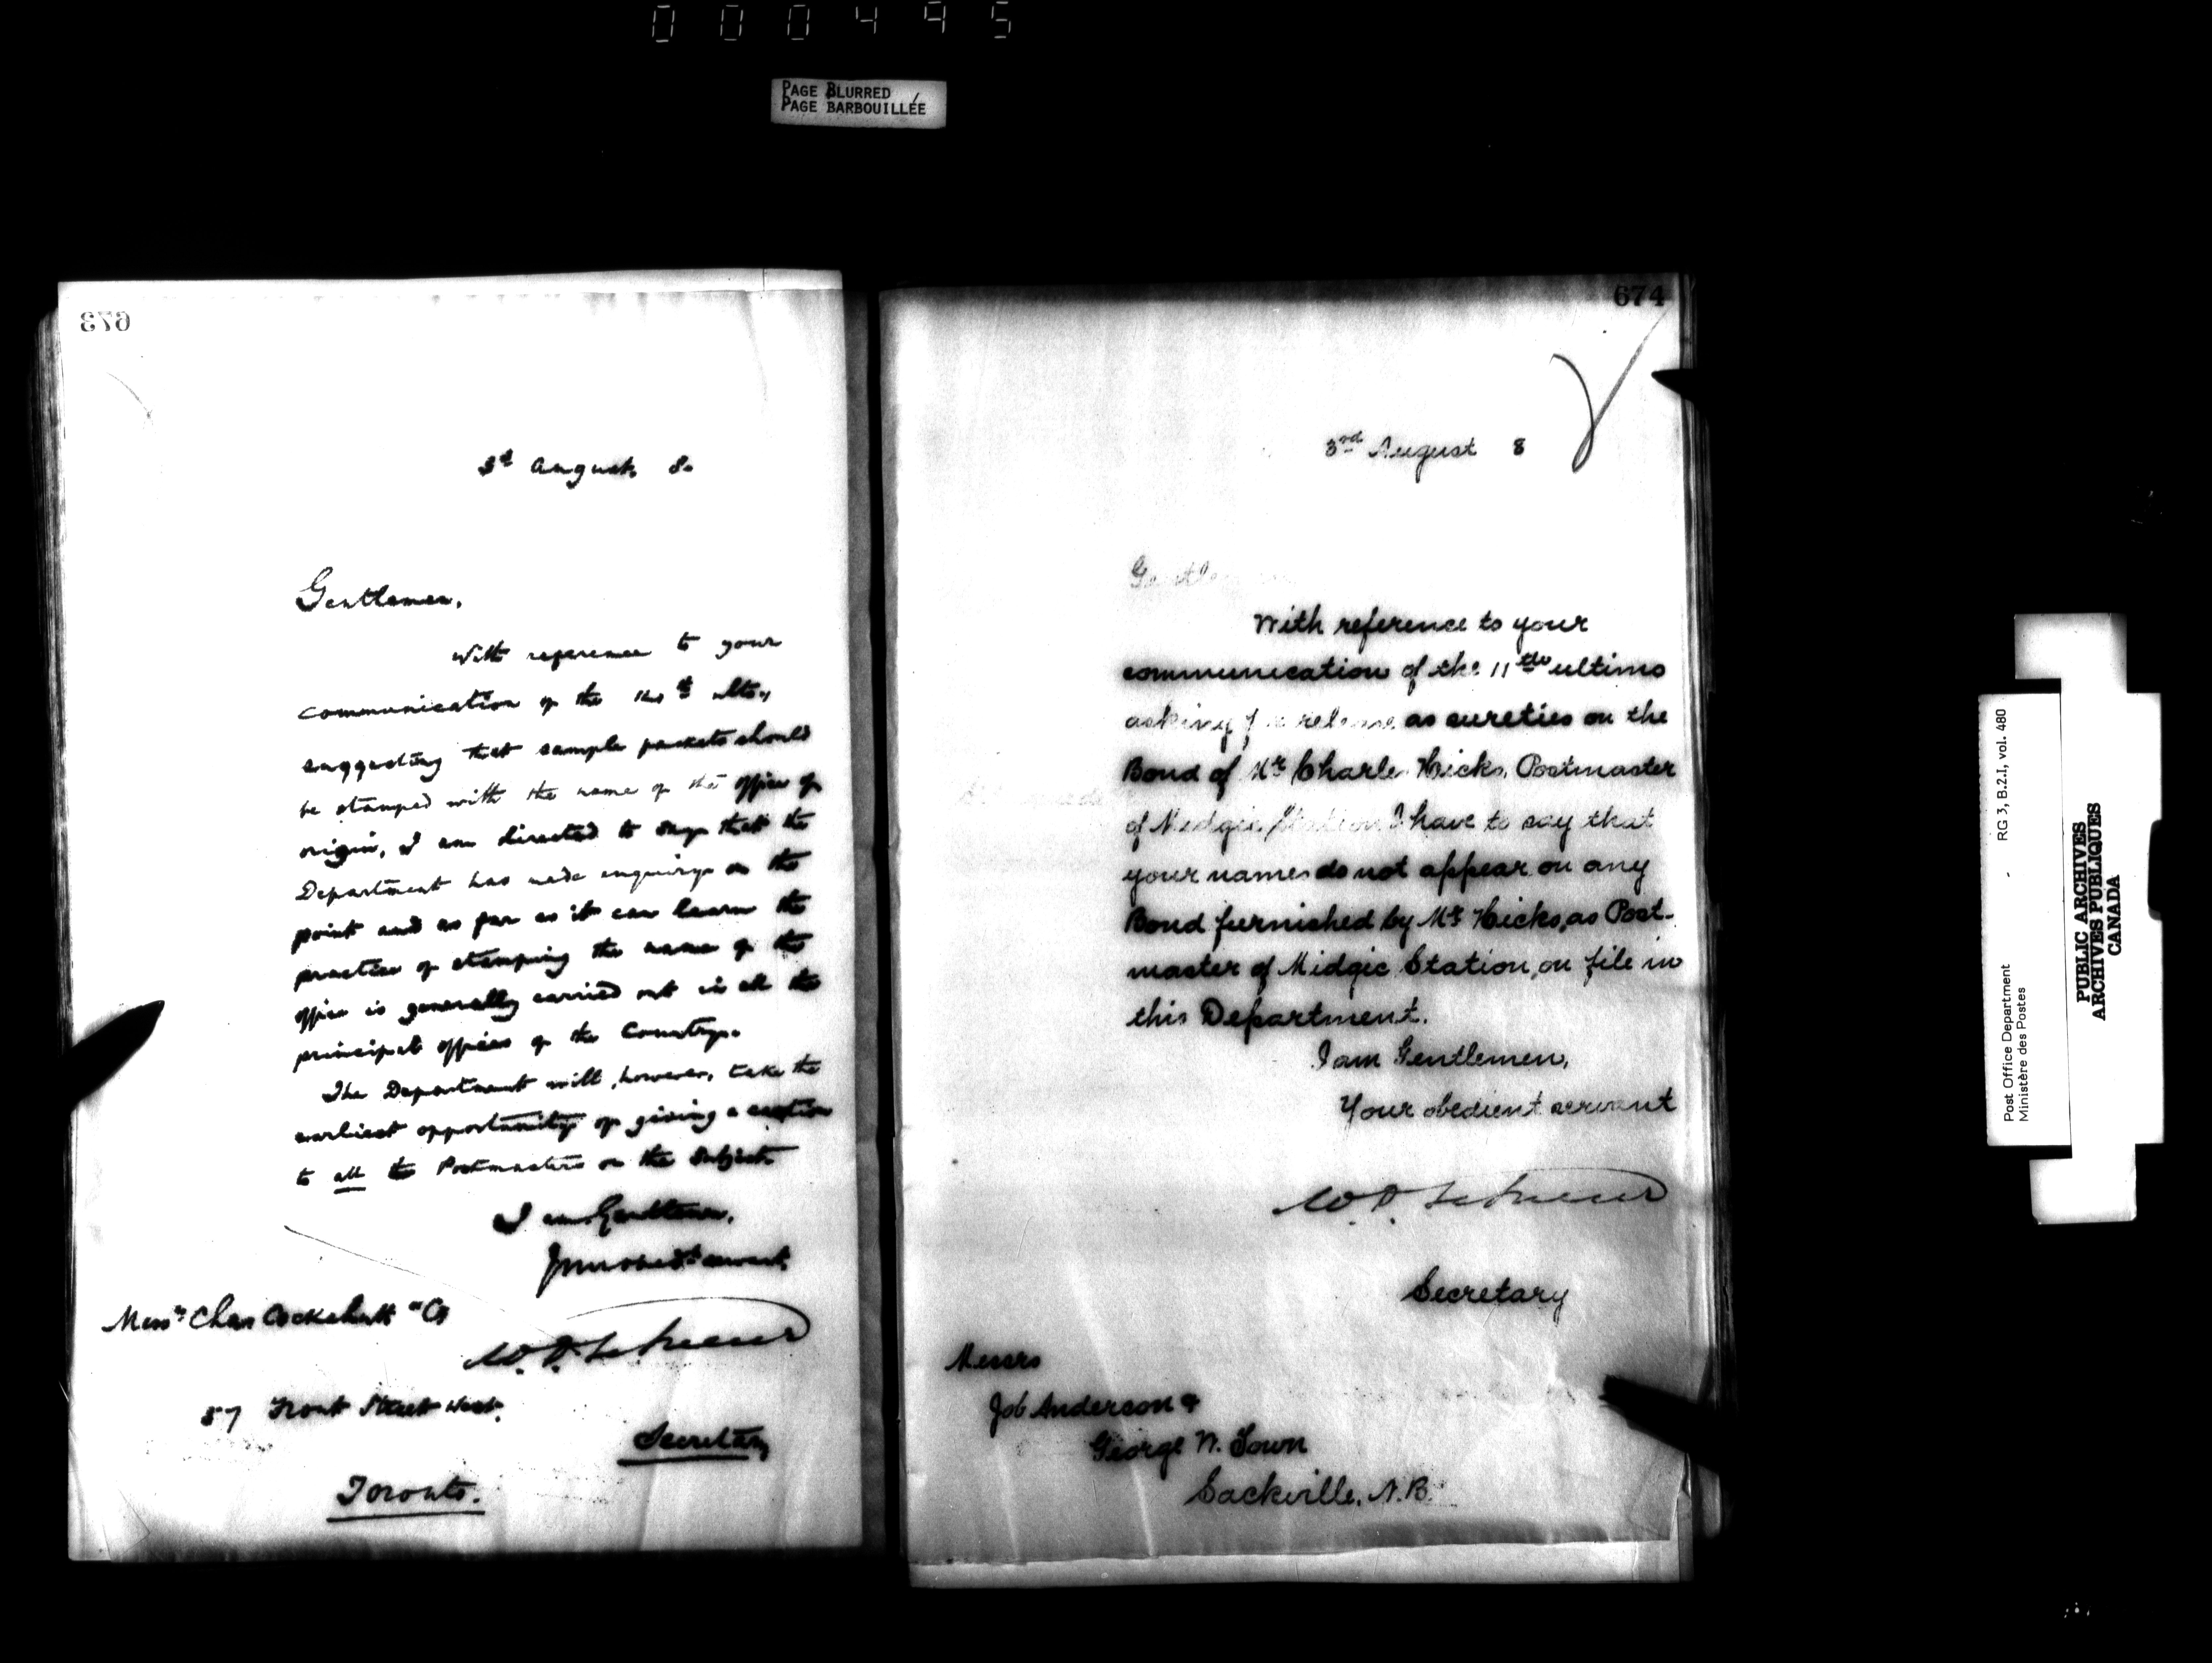 000495
PAGE BLURRED
PAGE BARBOUILLÉE
673
3d August. 8.
Gentlemen,
With reference to your
communication of the ulto.,
suggesting that sample packets should
be stamped with the name of the office of
origin, I am directed to say that the
Department has made enquiry on the
point and as far as it can learn the
practice of stamping the name of the
office is generally carried out in all the
principal offices of the Country.
The Department will, however, take the
earliest opportunity of giving a caution
to all the Postmasters on the subject.
I am Gentlemen,
Your obedt servant.
Messrs Chas Cockshutt & Co
57 Front Street West.
Secretary
Toronto.
674
3rd August 8
Gentlemen
With reference to your
communication of the 11th ultimo
asking for release as sureties on the
Bond of Mr Charles Hicks, Postmaster
of Midgic Station I have to say that
your names do not appear on any
Bond furnished by Mr Hicks, as Post-
master of Midgic Station, on file in
this Department.
I am Gentlemen,
Your obedient servant
Secretary
Messrs
Job Anderson &
George W. Town
Sackville, N.B.
Post Office Department
Ministère des Postes
RG 3, B.2.I, vol. 480
PUBLIC ARCHIVES
ARCHIVES PUBLIQUES
CANADA